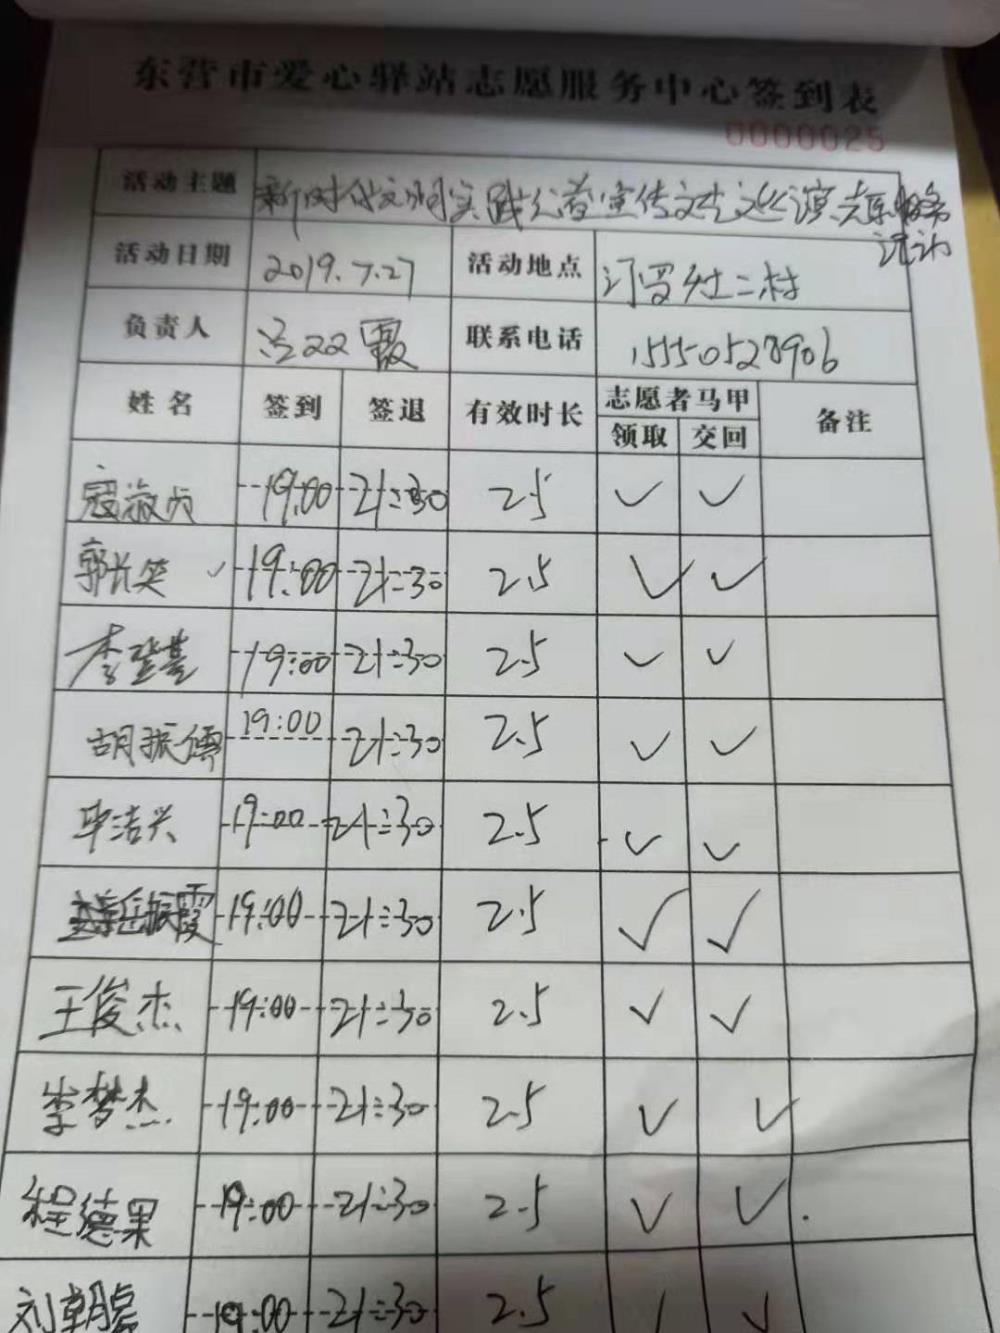 东营市爱心驿站志愿服务中心签到表
0000025
活动主题 新时代文明实践公益宣传文艺文化演志愿服务
活动日期 2019.7.27 活动地点 汀罗社二村
负责人 霞 联系电话 15550528906
姓名 签到 签退 有效时长 志愿者马甲 备注
领取 交回
寇淑贞 19:00 21:30 2.5 ✓ ✓
郭长笑 ✓ 19:00 21:30 2.5 ✓ ✓
李登基 19:00 21:30 2.5 ✓ ✓
胡振儒 19:00 21:30 2.5 ✓ ✓
毕洁兴 19:00 21:30 2.5 ✓ ✓
岳振霞 19:00 21:30 2.5 ✓ ✓
王俊杰 19:00 21:30 2.5 ✓ ✓
李梦杰 19:00 21:30 2.5 ✓ ✓
程德果 19:00 21:30 2.5 ✓ ✓
刘朝 19:00 21:30 2.5 ✓ ✓